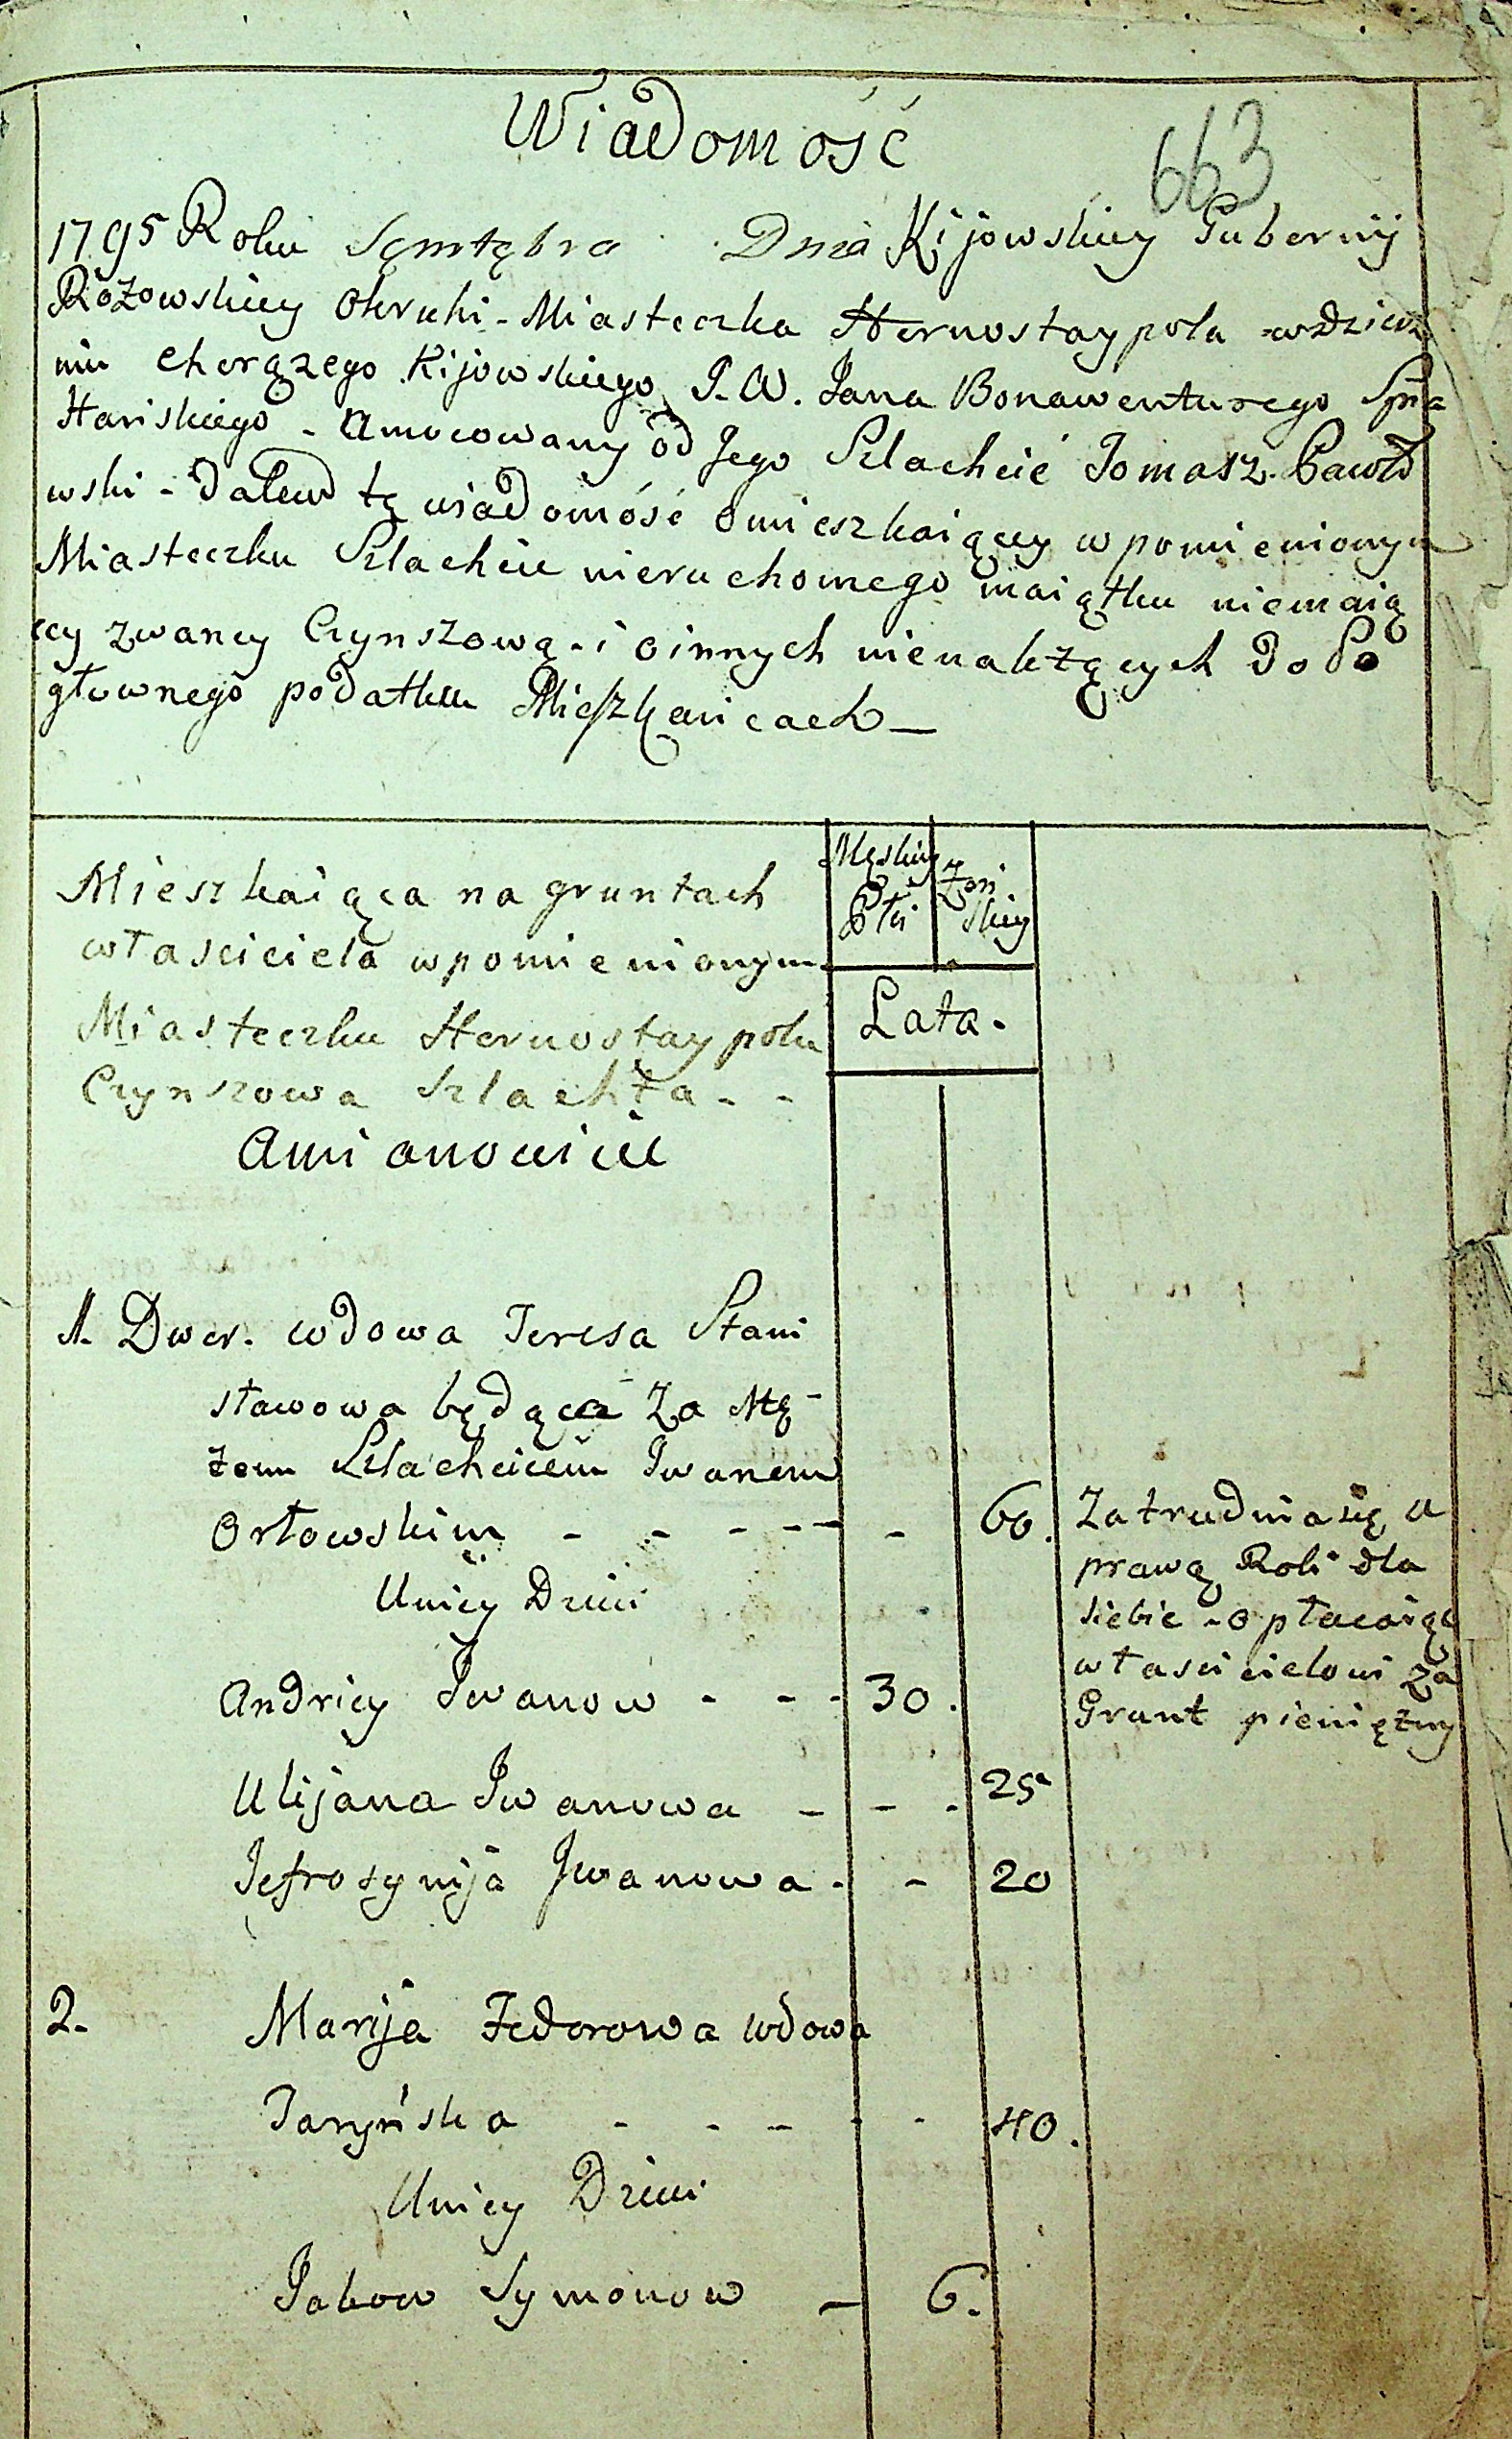 Wiadomość
663
1795 Roku Semtębra Dnia Kijowskiey Gubernij
Rożowskiey Okruhi - Miasteczka Hornostaypola wdzierż
niu chorązego Kijowskiego J. W. Jana Bonawenturego
Hańskiego - Umocowany od Jego Szlachcic Tomasz Pawło
wski - Dałem tę wiadomość o mieszkaiącey w pomienionym
Miasteczku Szlachcie nieruchomego maiątku niemaią
cey zwaney Czynszową - i o innych nienależących do Po
głownego podatku Mieszkańcach —
Mieszkaiąca na gruntach
własciciela w pomienionym
Miasteczku Hornostaypolu
Czynszowa Szlachta - -
A mianowicie
Męskiey Płci
Żeńskiey
Lata.
1. Dwor. wdowa Teresa Stani
sławowa będąca Za Mę-
żem Szlachcicem Iwanem
Orłowskim - - - - - - 60.
U niey Dzieci
Andriey Iwanow - - - 30.
Ulijana Iwanowa - - - 25
Jefrosynija Iwanowa - - 20
Zatrudnia się u
prawą Roli dla
siebie - opłacaiąc
własicielowi za
Grunt pieniężny
2. Marija Fedorowa wdowa
Jaryńska - - - - - 40.
U niey Dzieci
Jakow Symonow — 6.